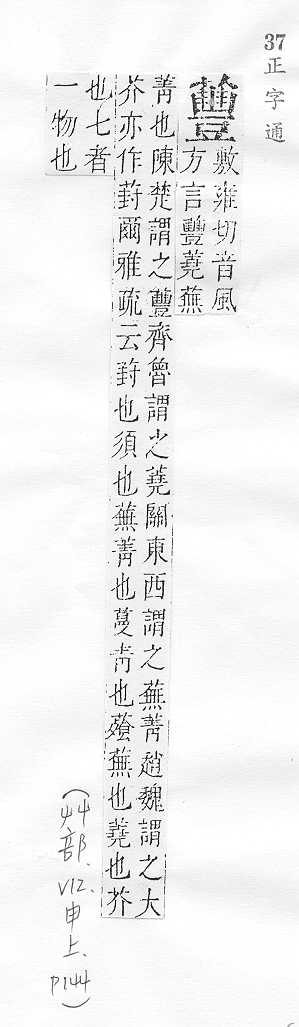 37正字通
蘴
敷雍切音風
方言蘴蕘蕪
菁也陳楚謂之蘴齊魯謂之蕘關東西謂之蕪菁趙魏謂之大
芥亦作葑爾雅疏云葑也須也蕪菁也蔓菁也薞蕪也蕘也芥
也七者
一物也
(艸部、V12、申上、P144)